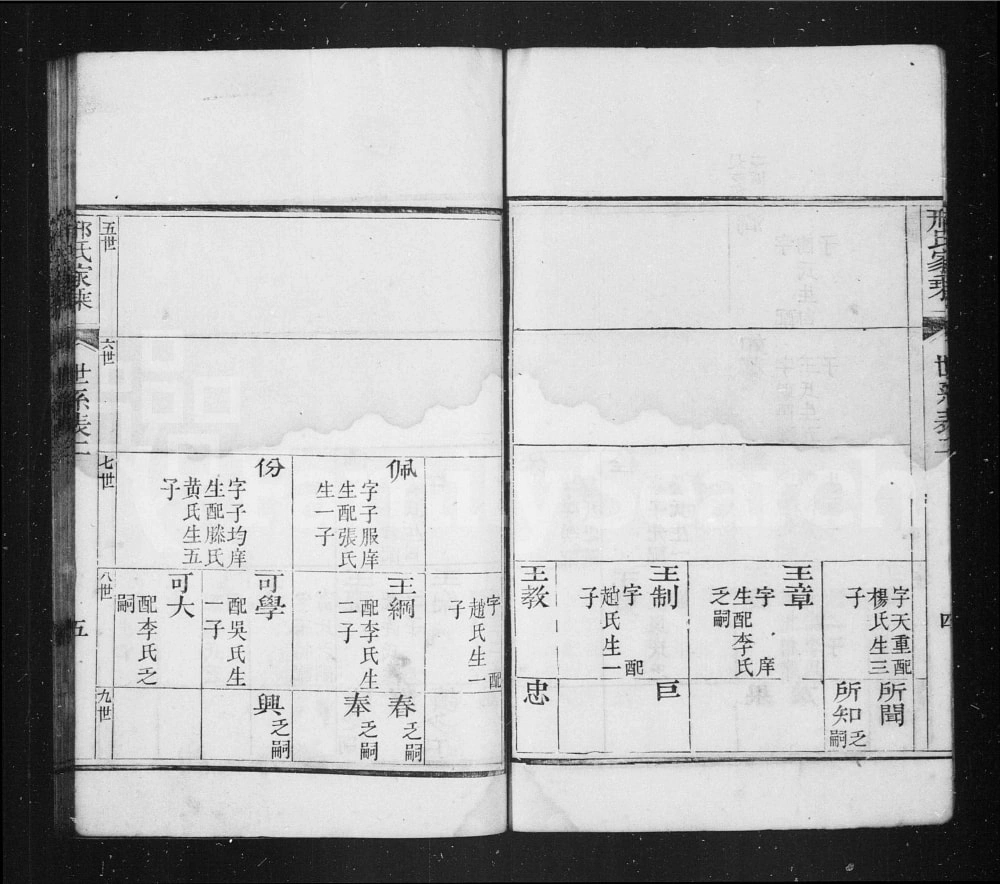 邢氏家乘
世系表二
四
字天重配
楊氏生三
子
所聞
所知乏
嗣
王章
字 庠
生配李氏
乏嗣
王制
字 配
趙氏生一
子
巨
王教
忠
字 配
趙氏生一
子
佩
字子服庠
生配張氏
生一子
王綱
配李氏生
二子
春乏
嗣
奉乏
嗣
份
字子均庠
生配滕氏
黄氏生五
子
可學
配吳氏生
一子
興乏
嗣
可大
配李氏乏
嗣
五世
六世
七世
八世
九世
邢氏家乘
世系表二
五